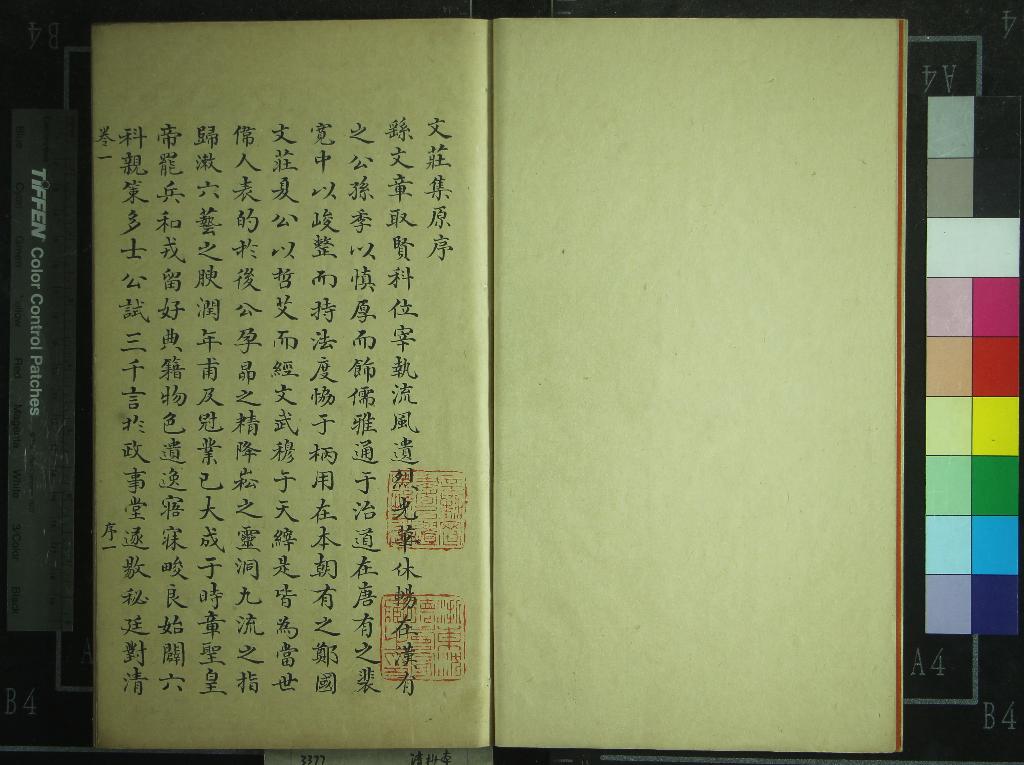 文莊集原序
繇文章取賢科位宰執流風遺烈光華休暢在漢有
之公孫季以慎厚而飾儒雅通于治道在唐有之裴
寬中以峻整而持法度恊于柄用在本朝有之鄭國
文莊夏公以哲艾而經文武穆于天縡是皆為當世
偉人表的於後公孕昴之精降崧之靈洞九流之指
歸漱六藝之腴潤年甫及冠業已大成于時章聖皇
帝罷兵和戎留好典籍物色遺逸寤寐畯良始闢六
科親策多士公試三千言於政事堂遂敭秘廷對清
卷一
序一
TIFFEN Color Control Patches
Blue
Cyan
Green
Yellow
Red
Magenta
White
3/Color
Black
B4
A4
A4
B4
3377
清抄本